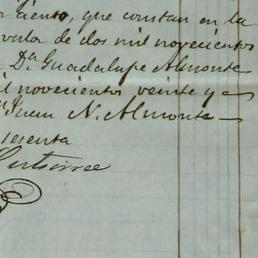 ciento, que constan en la
de dos mil novecientos
Da Guadalupe Almonte
novecientos veinte y
Juan N. Almonte
Gutierrez